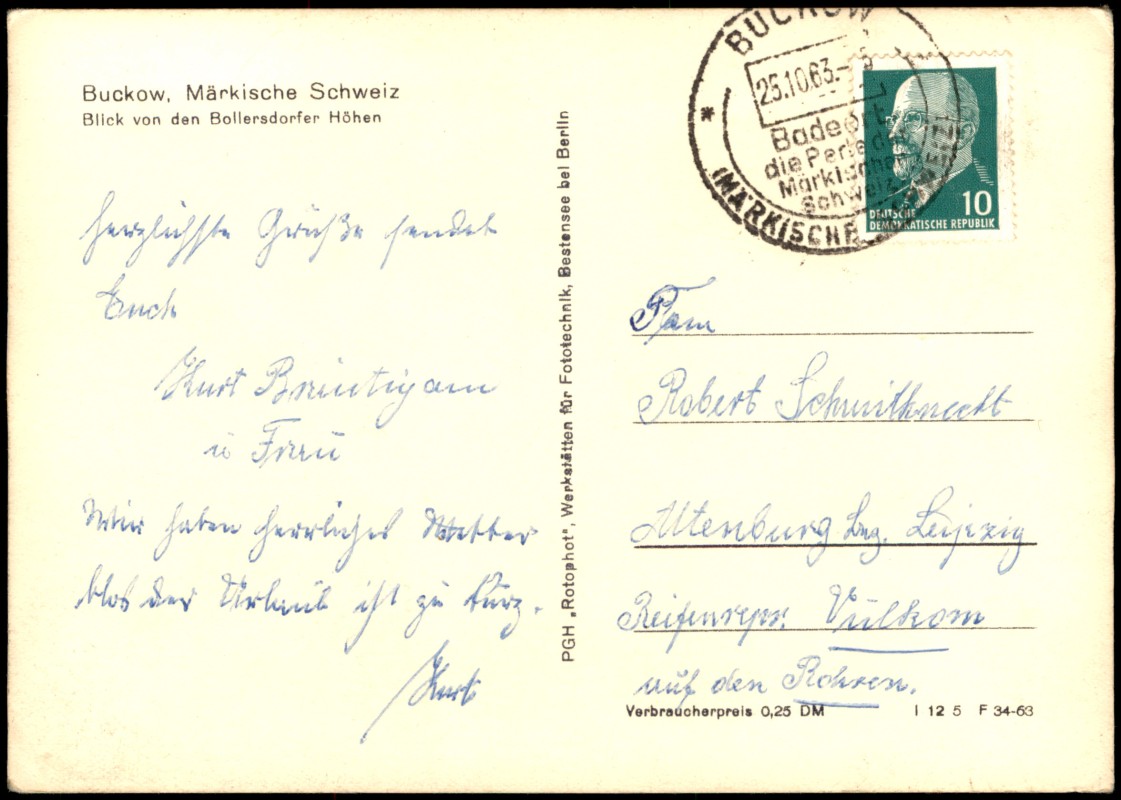 Buckow, Märkische Schweiz
Blick von den Bollersdorfer Höhen
herzlichste Grüße sendet
Euch
Kurt Bräutigam
u Frau
Wir haben herrliches Wetter
blos der Urlaub ist zu kurz.
Kurt
PGH „Rotophot“, Werkstätten für Fototechnik, Bestensee bei Berlin
BUCKOW
25.10.63.-
Badeort
die Perle der
Märkischen
Schweiz
* (MÄRKISCHE SCHWEIZ)
10
DEUTSCHE
DEMOKRATISCHE REPUBLIK
Fam
Robert Schmitknecht
Altenburg Bez. Leipzig
Reifenrepr. Vulkom
auf den Rohren.
Verbraucherpreis 0,25 DM I 12 5 F 34-63